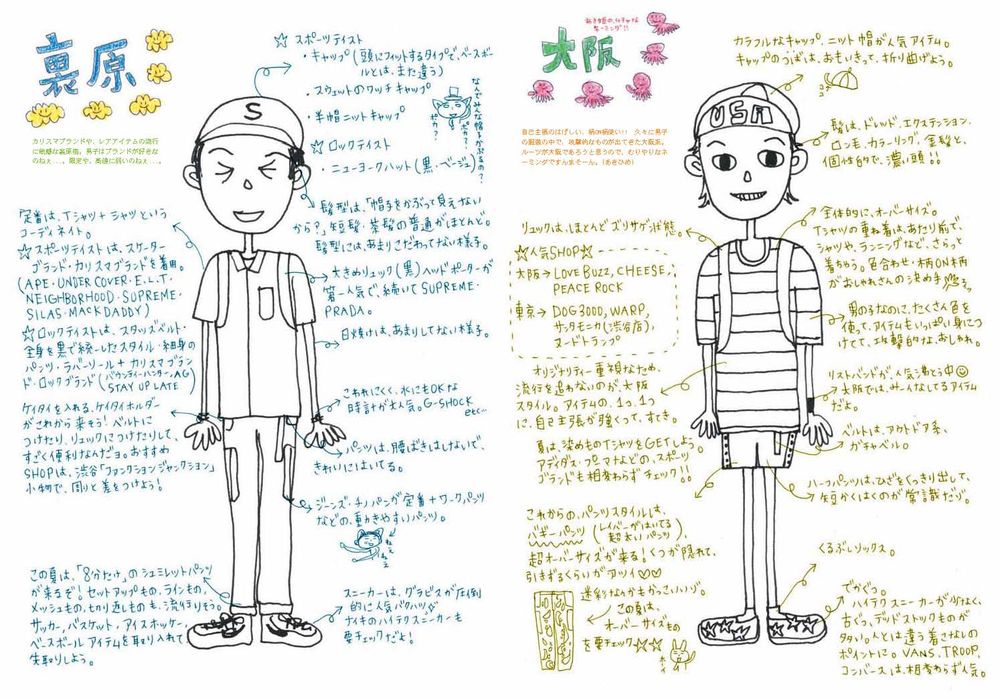 裏原
カリスマブランドや、レアアイテムの流行
に敏感な裏原宿。男子はブランドが好きな
のねぇ…。限定や、奥儀に弱いのねぇ…。
☆スポーツテイスト
・キャップ(頭にフィットするタイプで、ベースボ
ルとは、また違う)
・スウェットのワッチキャップ
・半帽ニットキャップ
なんでみんな帽子かぶるの?
ボウカ?
☆ロックテイスト
・ニューヨークハット(黒・ベージュ)
S
髪型は、「帽子をかぶって見えない
から?」短髪・茶髪の普通がほとんど。
髪型には、あまりこだわってない様子。
大きめリュック(黒)ヘッドポーターが
第一人気で、続いてSUPREME・
PRADA。
日焼けは、あまりしてない様子。
こわれにくく、水にもOKな
時計が大人気。G-SHOCK
etc…
パンツは、腰ばきはしないで、
きれいにはいてる。
ジーンズ・チノパンが定番+ワークパンツ
などの、動きやすいパンツ。
スニーカーは、グラビスが圧倒
的に人気バクハツ
ナイキのハイテクスニーカーも
要チェックだよ!
定番は、Tシャツ+シャツという
コーディネイト。
☆スポーツテイストは、スケーター
ブランド・カリスマブランドを着用。
(APE・UNDER COVER・E.L.T.
NEIGHBORHOOD・SUPREME・
SILAS・MACK DADDY)
☆ロックテイストは、スタッズベルト・
全身を黒で統一したスタイル・細身の
パンツ・ラバーソール+カリスマブラン
ド・ロックブランド(バウンティーハンター,AG)
STAY UP LATE
ケイタイを入れる、ケイタイホルダー
がこれから来そう!ベルトに
つけたり、リュックにつけたりして、
すごく便利なんだヨ。おすすめ
SHOPは、渋谷「ファンクションジャンクション」
小物で、周りと差をつけよう!
この夏は、「8分たけ」のシュミレットパンツ
が来るぞ!セットアップもの、ラインもの、
メッシュもの、切り返しものも、流行りそう。
サッカー,バスケット・アイスホッケー、
ベースボールアイテムを取り入れて
先取りしよう。
大阪
自己主張のはげしい、柄ON柄使い!!久々に男子
の服装の中で、攻撃的なものが出てきた大阪系。
ルーツが大阪であろうと思うので、むりやりなネ
ーミングですんませーん。(あきひめ)
カラフルなキャップ、ニット帽が人気アイテム。
キャップのつばは、おもいきって、折り曲げよう。
USA
髪は、ドレッド、エクステンション、
ロンモ、カラーリング、金髪と、
個性的で、濃い頭!!
リュックは、ほとんどズリサゲ状態。
☆人気SHOP☆
大阪→LOVE BUZZ, CHEESE,
PEACE ROCK
東京→DOG3000, WARP,
サンタモニカ(渋谷店),
ヌードトランプ
全体的に、オーバーサイズ。
Tシャツの重ね着は、あたり前で、
シャツや、ランニングなど、さらっと
着ちゃう。色合わせ・柄ON柄
がおしゃれさんの決め手
男のコなのに、たくさん色を
使って、アイテムもいっぱい身につ
けてて、攻撃的な、おしゃれ。
リストバンドが、人気沸とう中
大阪では、みーんなしてるアイテム
だよ。
ベルトは、アウトドア系、
ガチャベルト。
ハーフパンツは、ひざをくっきり出して、
短かくはくのが常識だゾ。
くるぶしソックス。
でかぐつ。
ハイテクスニーカーがぶなく、
古ぐつ、デッドストックものが
多い。人とは違う着こなしの
ポイントに。VANS, TROOP,
コンバースは、相変わらず人気。
オリジナリティー重視なため、
流行を追わないのが、大阪
スタイル。アイテムの、1つ、1つ
に、自己主張が強くって、すてき。
夏は、染めものTシャツをGETしよう。
アディダス・プーマなどの、スポーツ
ブランドも相変わらずチェック!!
これからの、パンツスタイルは、
バギーパンツ(レイバーがはいてる
超太いパンツ)、
超オーバーサイズが来る!くつが隠れて、
引きずるくらいがアツイ♡♡
迷彩なんかもかっこいいゾ。
この夏は、
オーバーサイズもの
を要チェック☆☆